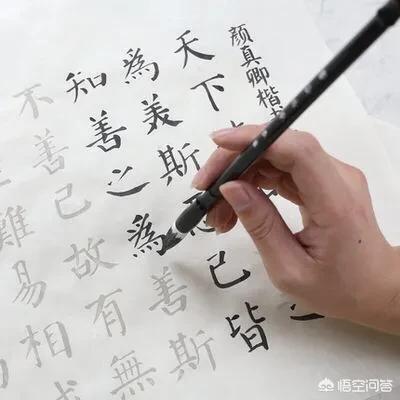 颜真卿楷
天下
為美斯已皆
知善之為善斯
不善已故有無
難易相
悟空问答